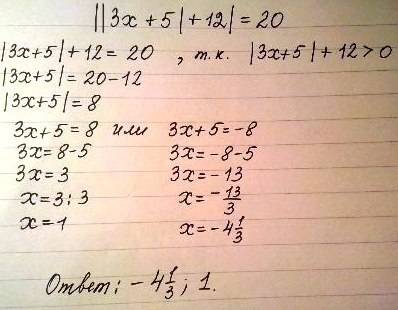 ||3x + 5| + 12| = 20
|3x+5| + 12 = 20 , т.к. |3x+5| + 12 > 0
|3x+5| = 20 - 12
|3x+5| = 8
3x+5 = 8 или 3x+5 = -8
3x = 8-5 3x = -8-5
3x = 3 3x = -13
x = 3 : 3 x = -13/3
x = 1 x = -4 1/3
Ответ: -4 1/3 ; 1.